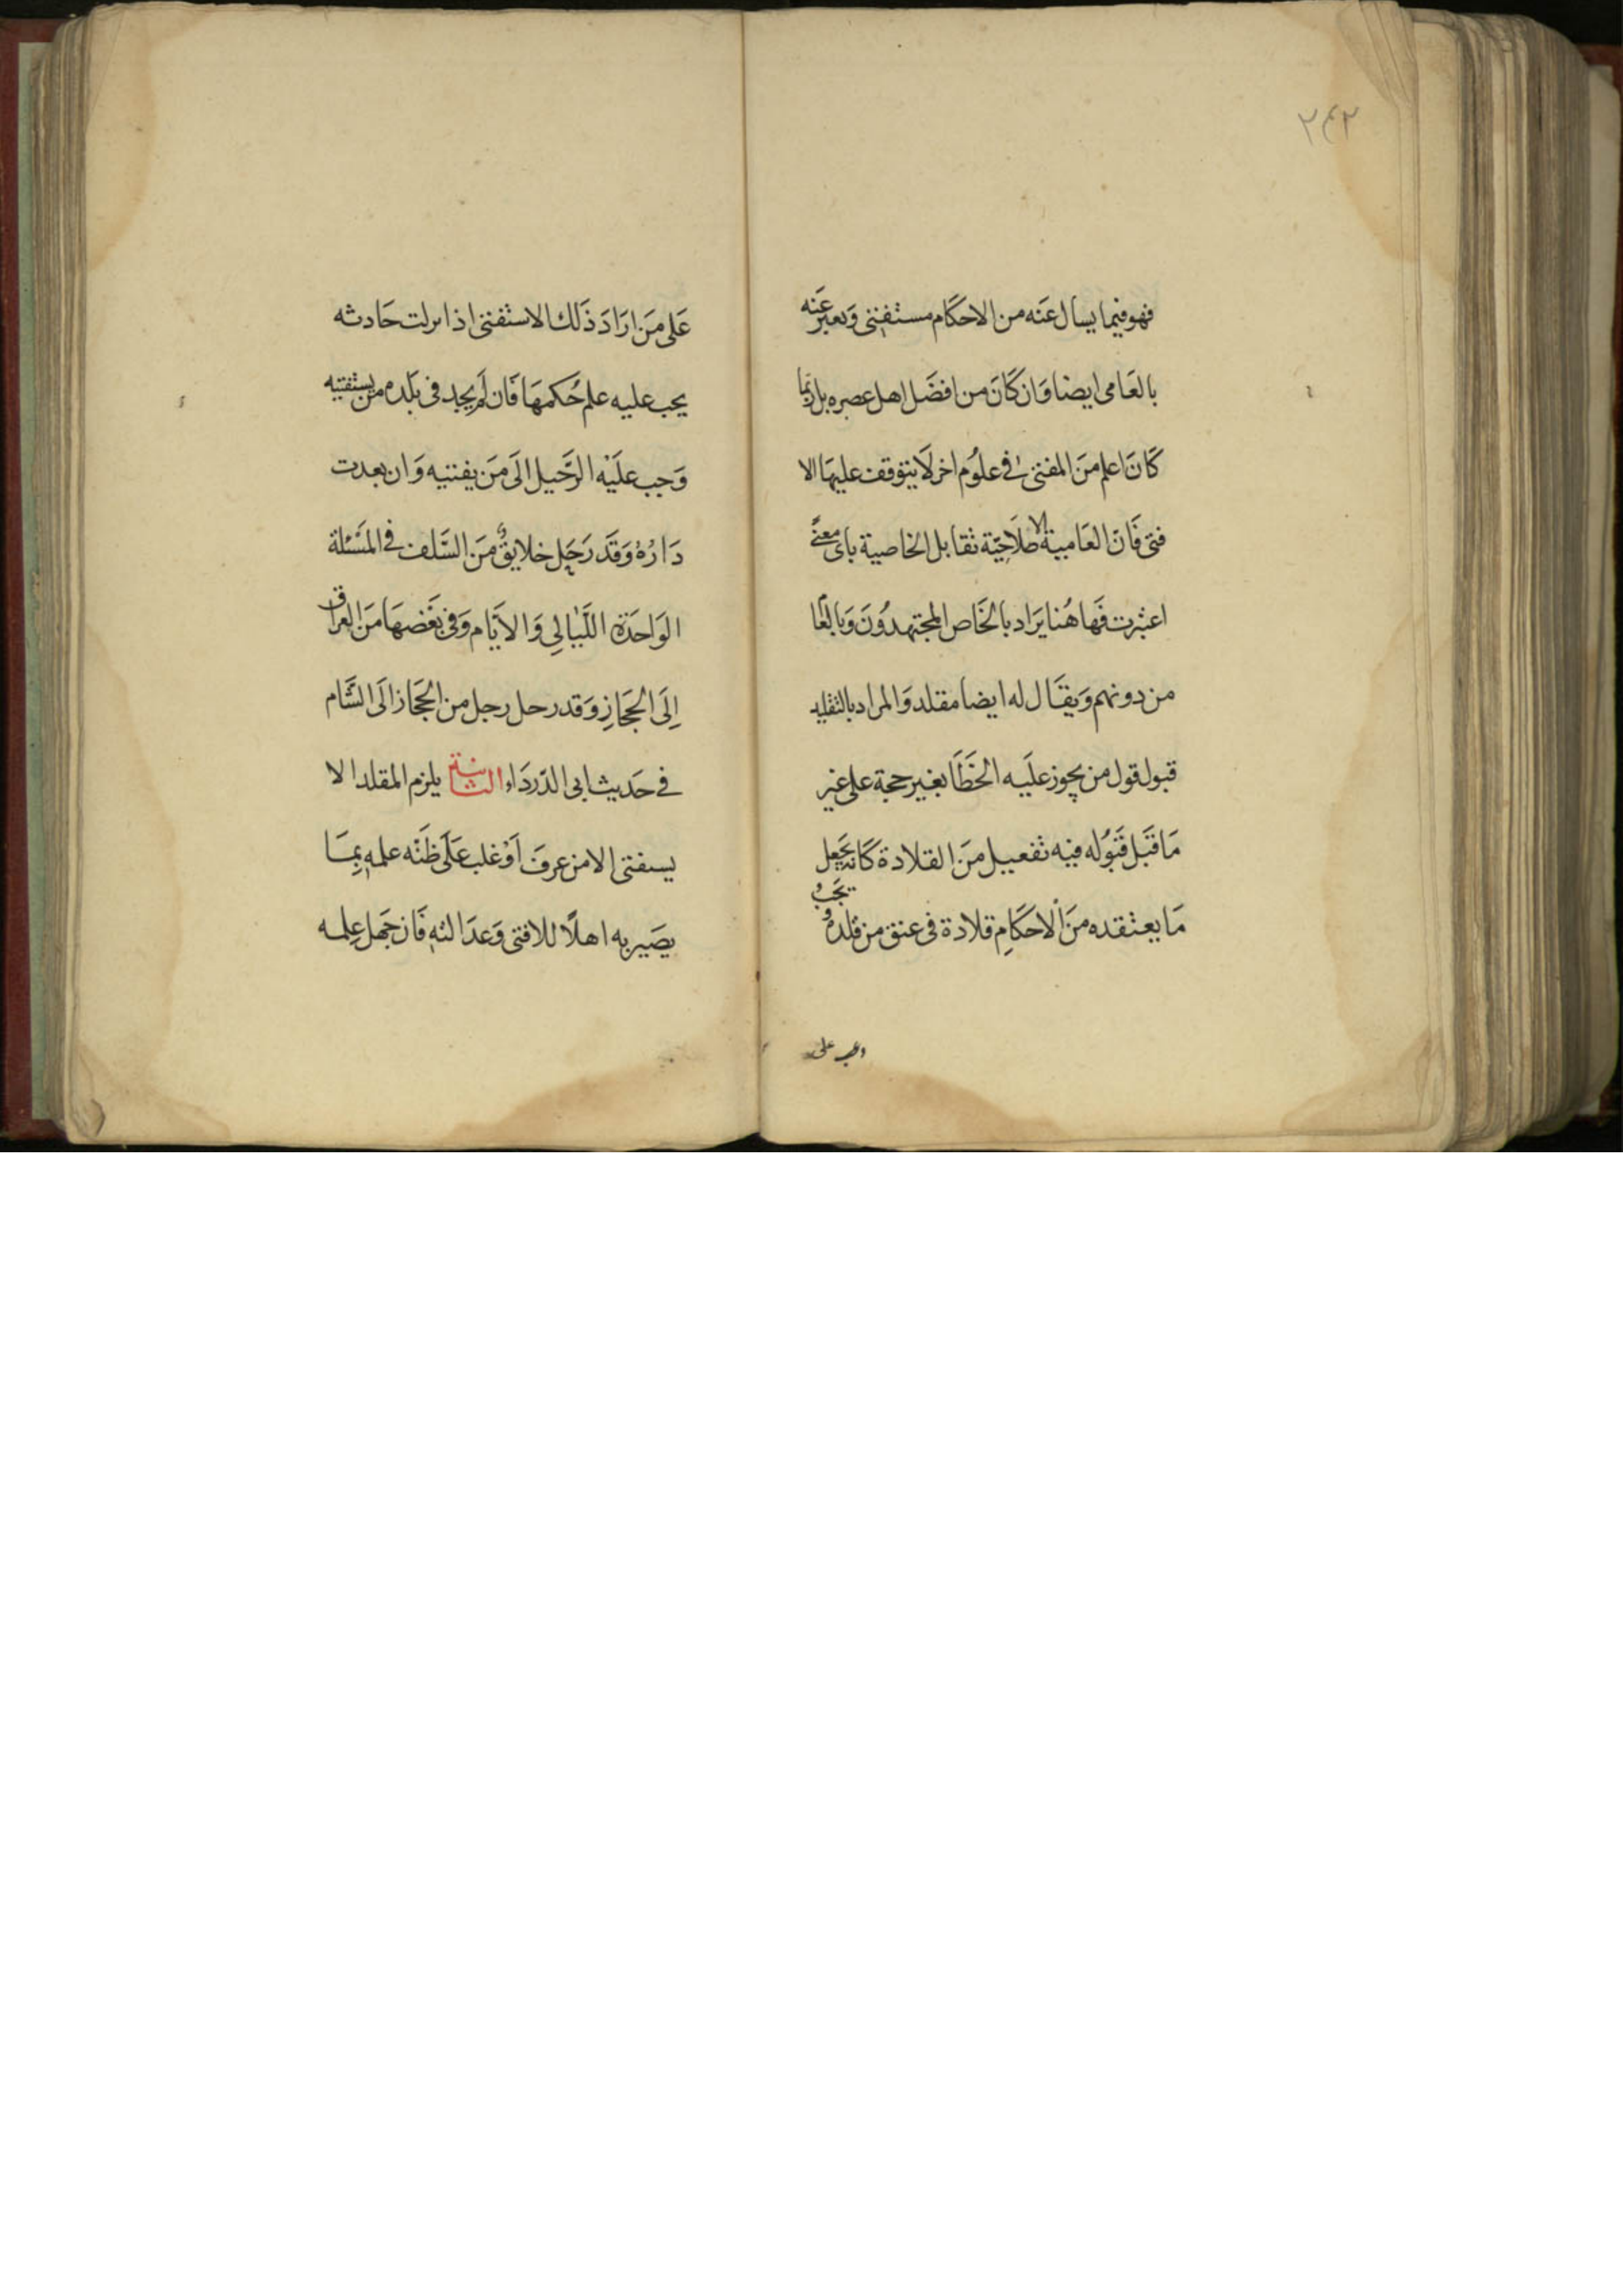 ٢٤٢
فهو فيما يسال عَنه من الاحكَام مستفتى وَيعبر عَنه
بالعَامى ايضا وَان كَانَ من افضَل اهل عصره بل رُبما
كَانَ اعلم مَن المفتى فى علوُم اخر لَا يتوقف عليهَا الا
فتى فَانّ العَامية الاصطلَاحِيّة تقابل الخاصية باى معنًى
اعتبرت فَهاهُنا يَراد بالخَاص المجتهدوُنَ وَبالعَا
من دونهم وَيقَال له ايضا مقلد وَالمراد بالتقليد
قبول قول من يجوز علَيه الخَطَا بغير حجة على غير
مَا قَبل قَبوُله فيه تفعيل مَن القلادة كَانه يَجعل
مَا يعتقده مَن الاحكَامِ قلادة فى عنق من قلده وُ يَجبُ
على
عَلى مَن ارَادَ ذَلك الاستفتى اذا نزلت حَادثه
يجب عليه علم حُكمهَا فَان لَم يجد فى بَلده من يستفتيه
وَجب علَيْه الرَّحيل الَى مَن يفتيه وَان بعدت
دَارُهُ وَقَد رَحَل خلايقٌ مَن السَّلف فى المَسْئلة
الوَاحدَة اللَّيَالِي وَالاَيَام وَفى بَعْضهَا مَن العراق
اِلَى الحجَازِ وَقد رحل رجل من الحجَاز الَى الشَّام
فى حَديث ابى الدّردَاء الثانية يلزم المقلد الا
يستفتى الا من عرفَ اَوْ غلب عَلَى ظَنّه علمه بِمَا
يصَير به اهلًا للافتى وَعدَالته فَان جَهل عِلمه